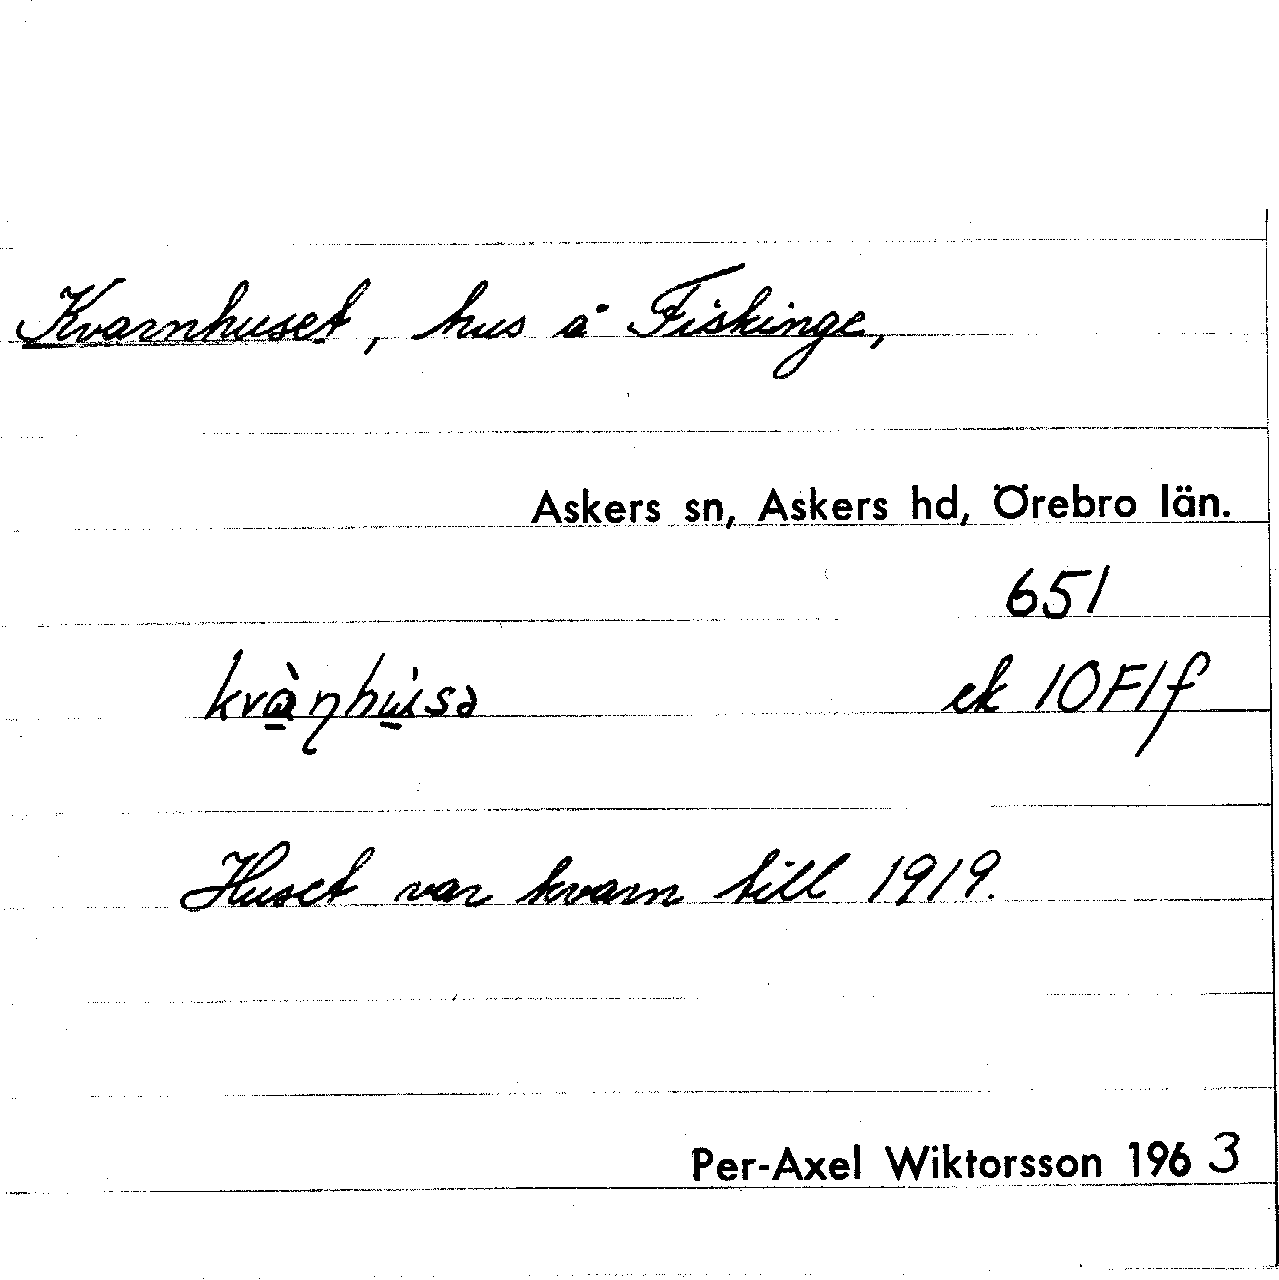 Kvarnhuset, hus å Fiskinge,
Askers sn, Askers hd, Örebro län.
651
ek 10F1f
Huset var kvarn till 1919.
Per-Axel Wiktorsson 1963